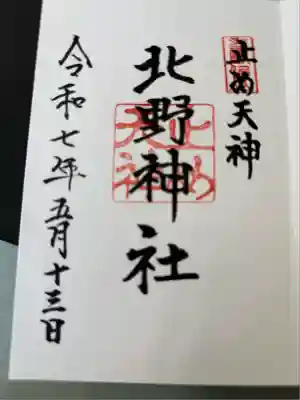 止め天神
北野神社
令和七年五月十三日
止め
天神